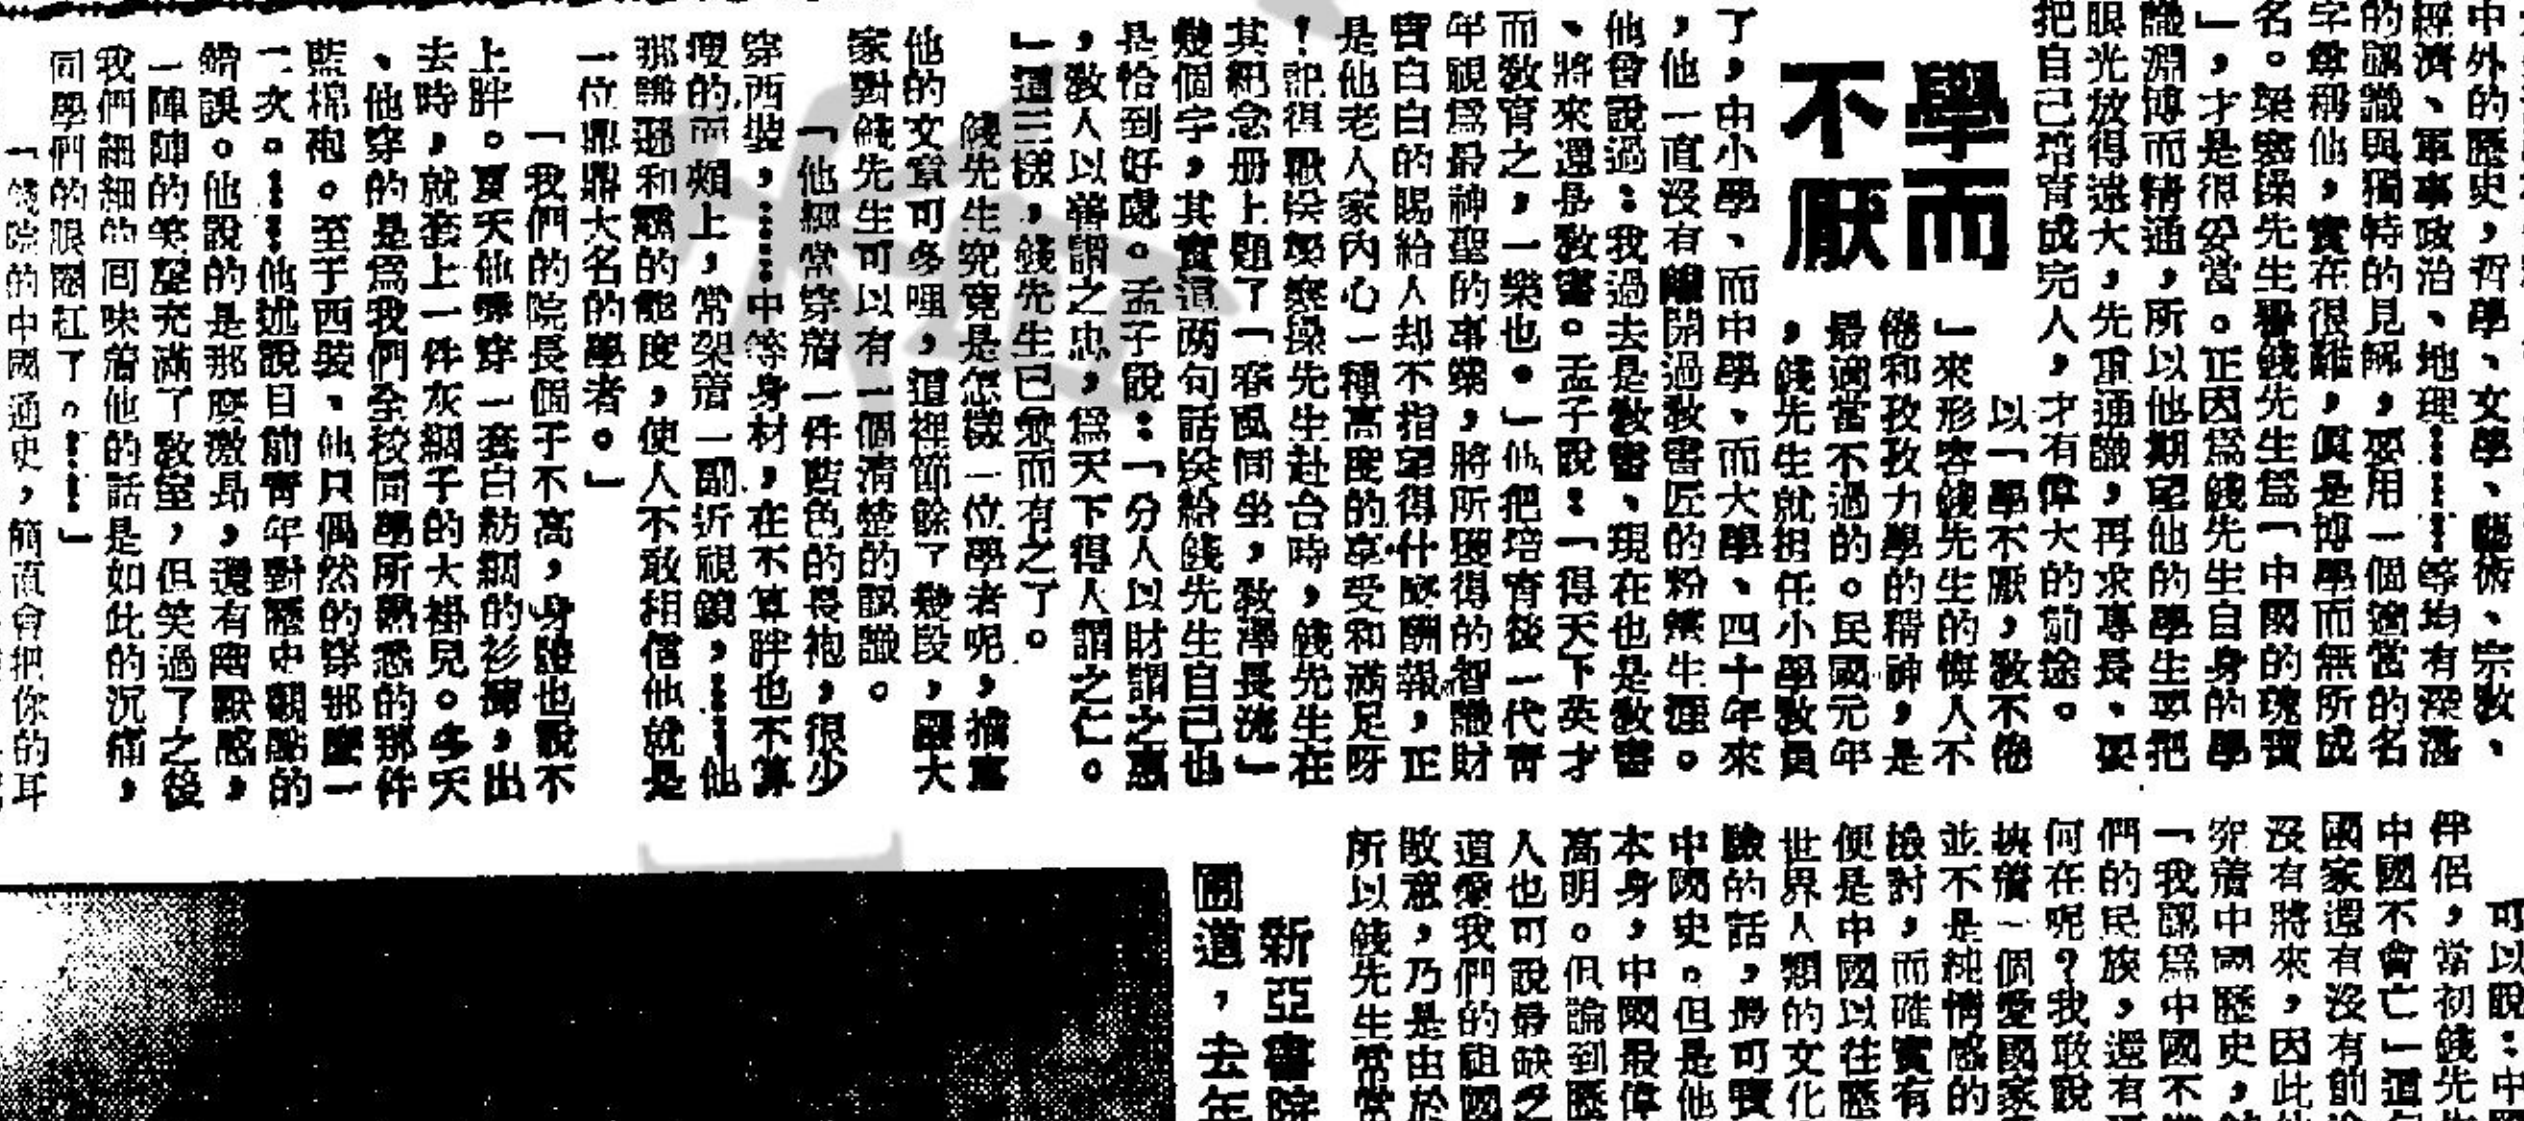 中外的歷史，哲學、文學、藝術、宗教、
經濟、軍事政治、地理……等均有深湛
的認識與獨特的見解，要用一個適當的名
字尊稱他，實在很難，眞是博學而無所成
名。梁寒操先生譽錢先生爲「中國的瑰寶
」，才是很妥當。正因爲錢先生自身的學
識淵博而精通，所以他期望他的學生要把
眼光放得遠大，先重通識，再求專長、要
把自己培育成完人，才有偉大的前途。
學而
不厭
以「學不厭，敎不倦
」來形容錢先生的悔人不
倦和孜孜力學的精神，是
最適當不過的。民國元年
，錢先生就担任小學敎員
了，由小學、而中學、而大學、四十年來
，他一直沒有離開過敎書匠的粉筆生涯。
他曾說過：我過去是敎書、現在也是敎書
、將來還是敎書。孟子說：「得天下英才
而敎育之，一樂也。」他把培育後一代青
年視爲最神聖的事業，將所獲得的智識財
寶白白的賜給人却不指望得什麽酬報，正
是他老人家內心一種高度的享受和滿足呀
！記得歡送梁寒操先生赴台時，錢先生在
其紀念册上題了「春風同坐，敎澤長流」
幾個字，其實這兩句話送給錢先生自己也
是恰到好處。孟子說：「分人以財謂之惠
，敎人以善謂之忠，爲天下得人謂之仁。
」這三樣，錢先生已兼而有之了。
錢先生究竟是怎樣一位學者呢，描寫
他的文章可多哩，這裡節餘了幾段，讓大
家對錢先生可以有一個清楚的認識。
「他經常穿着一件藍色的長袍，很少
穿西裝，……中等身材，在不算胖也不算
瘦的面頰上，常架着一副近視鏡，……他
那謙遜和靄的態度，使人不敢相信他就是
一位鼎鼎大名的學者。」
「我們的院長個子不高，身體也說不
上胖。夏天他慣穿一套白紡綢的衫褲，出
去時，就套上一件灰綢子的大褂兒。冬天
、他穿的是爲我們全校同學所熟悉的那件
藍棉袍。至于西裝、他只偶然的穿那麼一
二次。……他述說目前青年對歷史觀點的
錯誤。他說的是那麽激昂，還有幽默感，
一陣陣的笑聲充滿了敎室，但笑過了之後
我們細細的回味着他的話是如此的沉痛，
同學們的眼圈紅了。……」
「錢院的中國通史，簡直會把你的耳
可以說：中
伴侶，當初錢先
中國不會亡」這
國家還有沒有前
沒有將來，因此
究着中國歷史，
「我認爲中國不
們的民族，還有
何在呢？我敢說
挾着一個愛國家
並不是純情感的
檢討，而確實有
便是中國以往歷
世界人類的文化
驗的話，最可寶
中國史。但是他
本身，中國最偉
高明。但論到歷
人也可說最缺乏
道愛我們的祖國
敬意，乃是由於
所以錢先生常常
新亞書院
圖道，去年